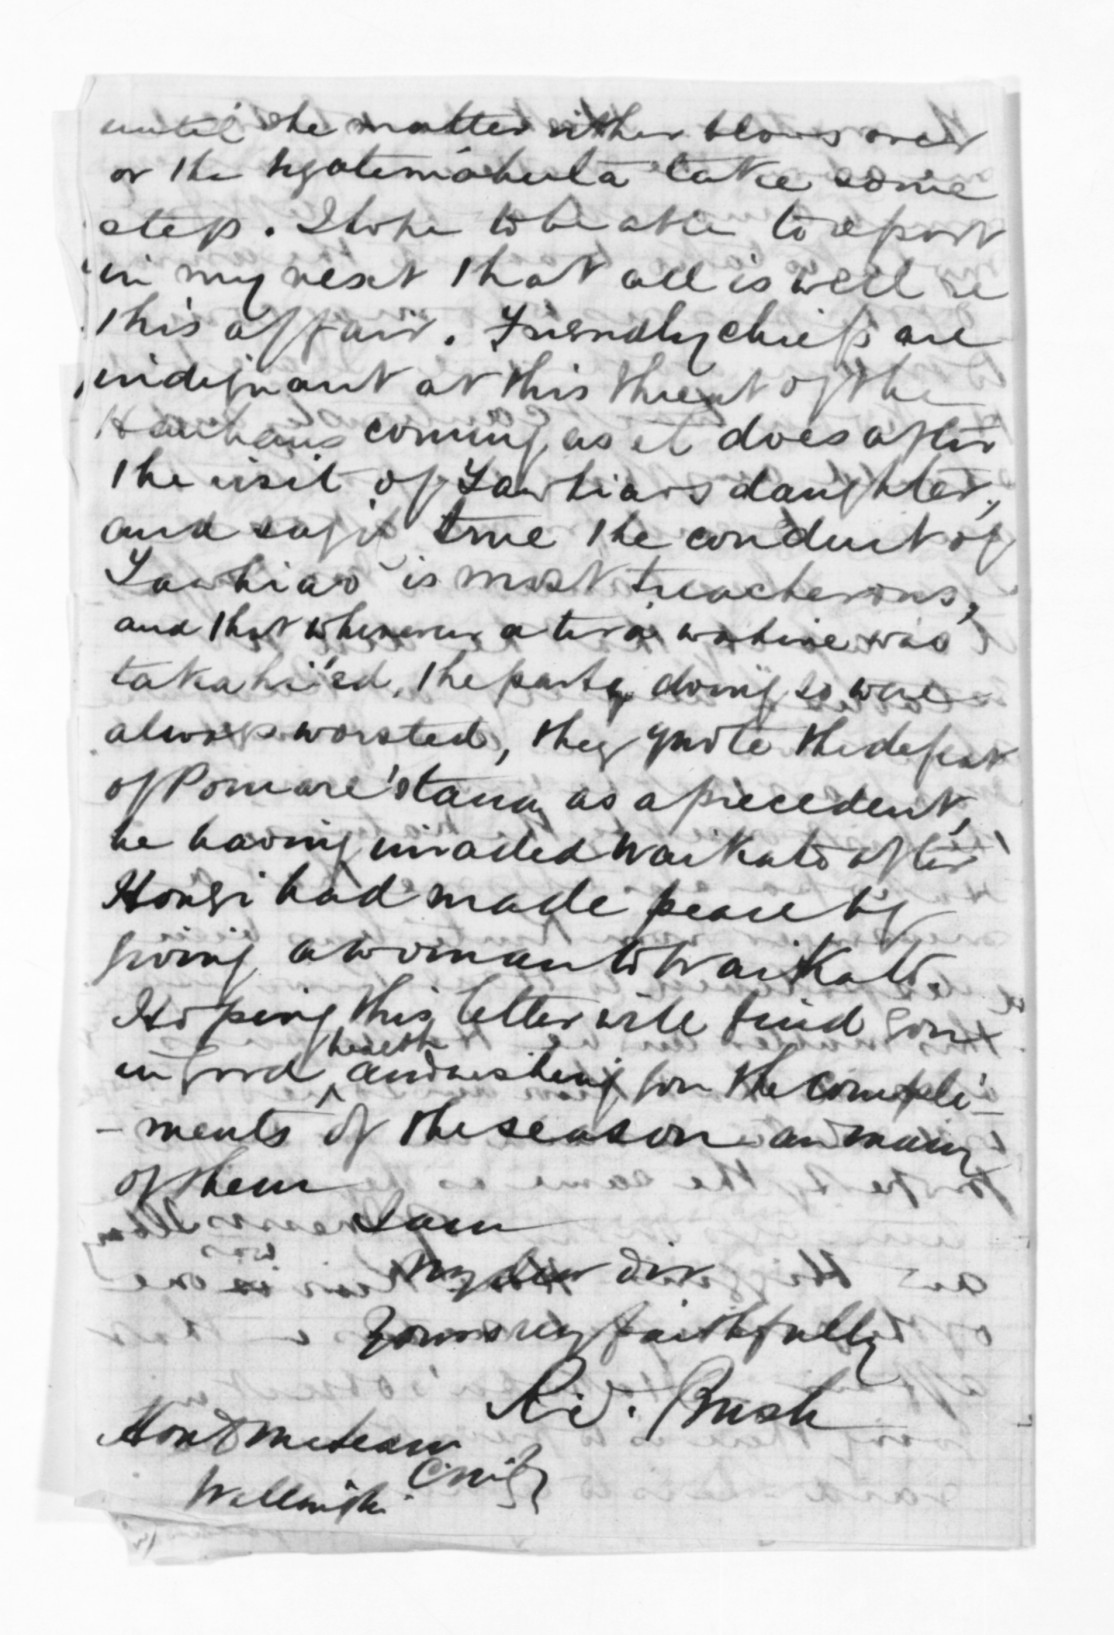 until the matter either blows over
or the Ngatemahuta take some
step. I hope to be able to report
in my next that all is well re
this affair. Friendly chiefs are
indignant at this threat of the
Hauhaus coming as it does after
the visit of Tawhiao's daughter,
and say if true the conduct of
Tawhiao is most treacherous,
and that whenever a wahine was
takahi'ed, the party doing so were
always worsted, they quote the defeat
of Pomare's taua as a precedent,
he having invaded Waikato after
Hongi had made peace by
giving a woman to Waikato.
Hoping this letter will find you
in good health and wishing you the compli-
-ments of the season an many
of them
I am
My dear Sir
Yours very faithfully
R. S. Bush
Hon D McLean
C.M.G
Wellington